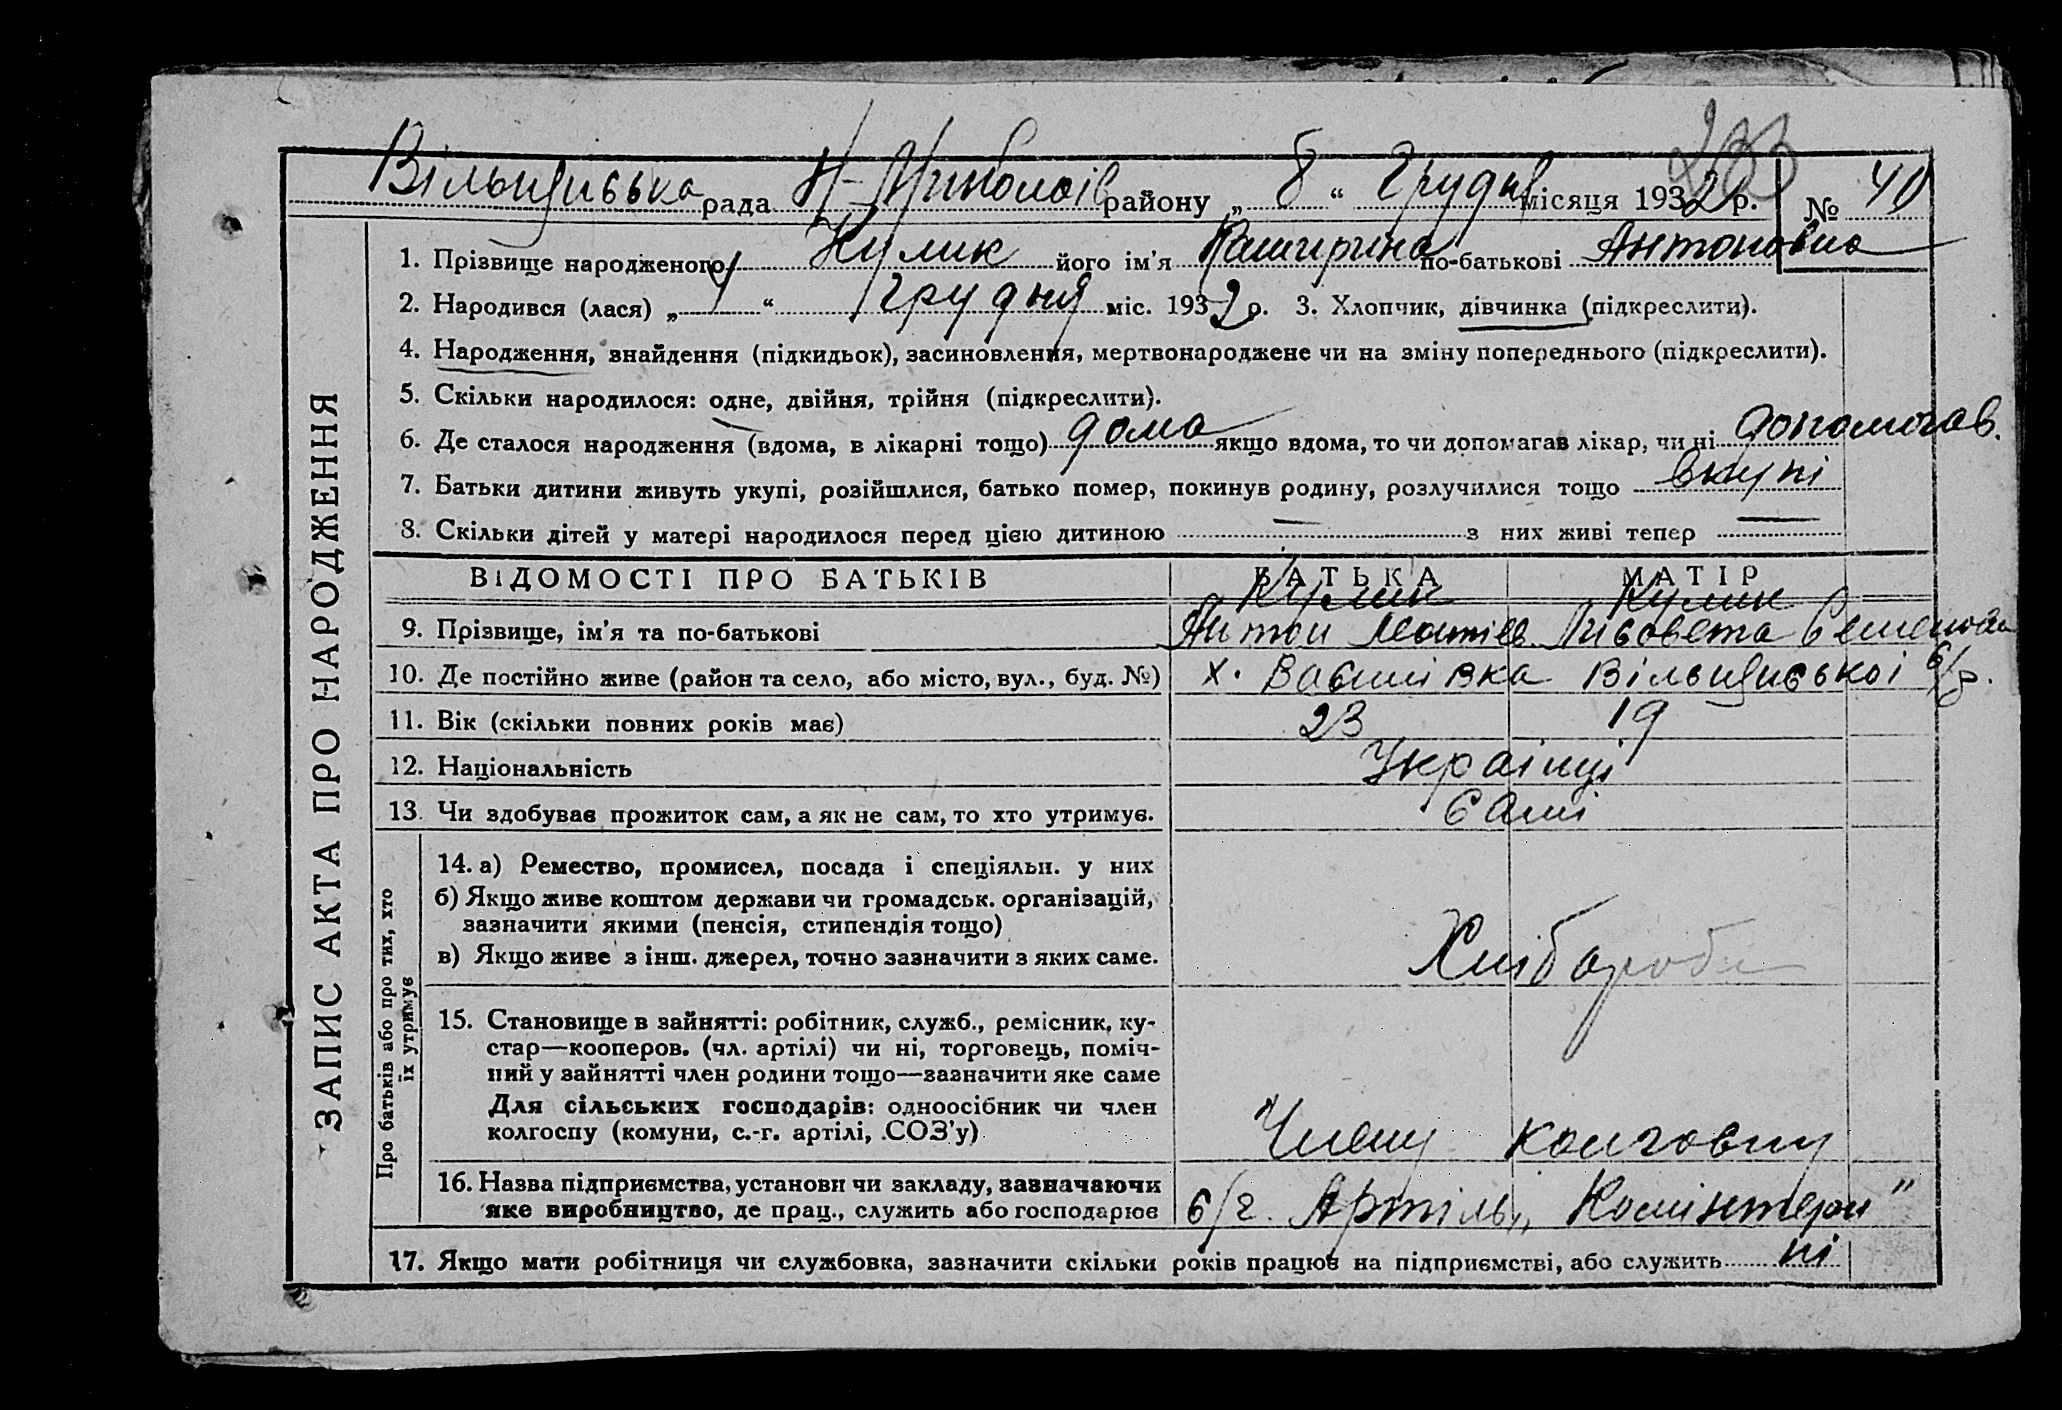 233
Вільшанська рада Н-Миколаїв району „ 8 “ Грудня місяця 1932 р. № 40
1. Прізвище народженого Кулик його ім'я по-батькові Антоновна
2. Народився (лася) „ 1 “ грудня міс. 1932 р. 3. Хлопчик, дівчинка (підкреслити).
4. Народження, знайдення (підкидьок), засиновлення, мертвонароджене чи на зміну попереднього (підкреслити).
5. Скільки народилося: одне, двійня, трійня (підкреслити).
6. Де сталося народження (вдома, в лікарні тощо) дома якщо вдома, то чи допомагав лікар, чи ні допомогав.
7. Батьки дитини живуть укупі, розійшлися, батько помер, покинув родину, розлучилися тощо вкупі
8. Скільки дітей у матері народилося перед цією дитиною — з них живі тепер —
ВІДОМОСТІ ПРО БАТЬКІВ БАТЬКА МАТІР
Кулик Кулик
9. Прізвище, ім'я та по-батькові Антон Леонтіев. Лисовета Семенов
10. Де постійно живе (район та село, або місто, вул., буд. №) х. Василівка с/р.
11. Вік (скільки повних років має) 23 19
12. Національність Українці
13. Чи здобував прожиток сам, а як не сам, то хто утримує. Сами
14. а) Ремество, промисел, посада і спеціяльн. у них
б) Якщо живе коштом держави чи громадськ. організацій,
зазначити якими (пенсія, стипендія тощо)
в) Якщо живе з інш. джерел, точно зазначити з яких саме. Хлібороби
15. Становище в зайнятті: робітник, служб., ремісник, ку-
стар—кооперов. (чл. артілі) чи ні, торговець, поміч-
ний у зайнятті член родини тощо—зазначити яке саме
Для сільських господарів: одноосібник чи член
колгоспу (комуни, с.-г. артілі, СОЗ'у) Члени колгоспу
16. Назва підприємства, установи чи закладу, зазначаючи
яке виробництво, де прац., служить або господарює с/г. Артіль „Комінтерн"
17. Якщо мати робітниця чи службовка, зазначити скільки років працює на підприємстві, або служить ні
ЗАПИС АКТА ПРО НАРОДЖЕННЯ
Про батьків або про тих, хто
їх утримує